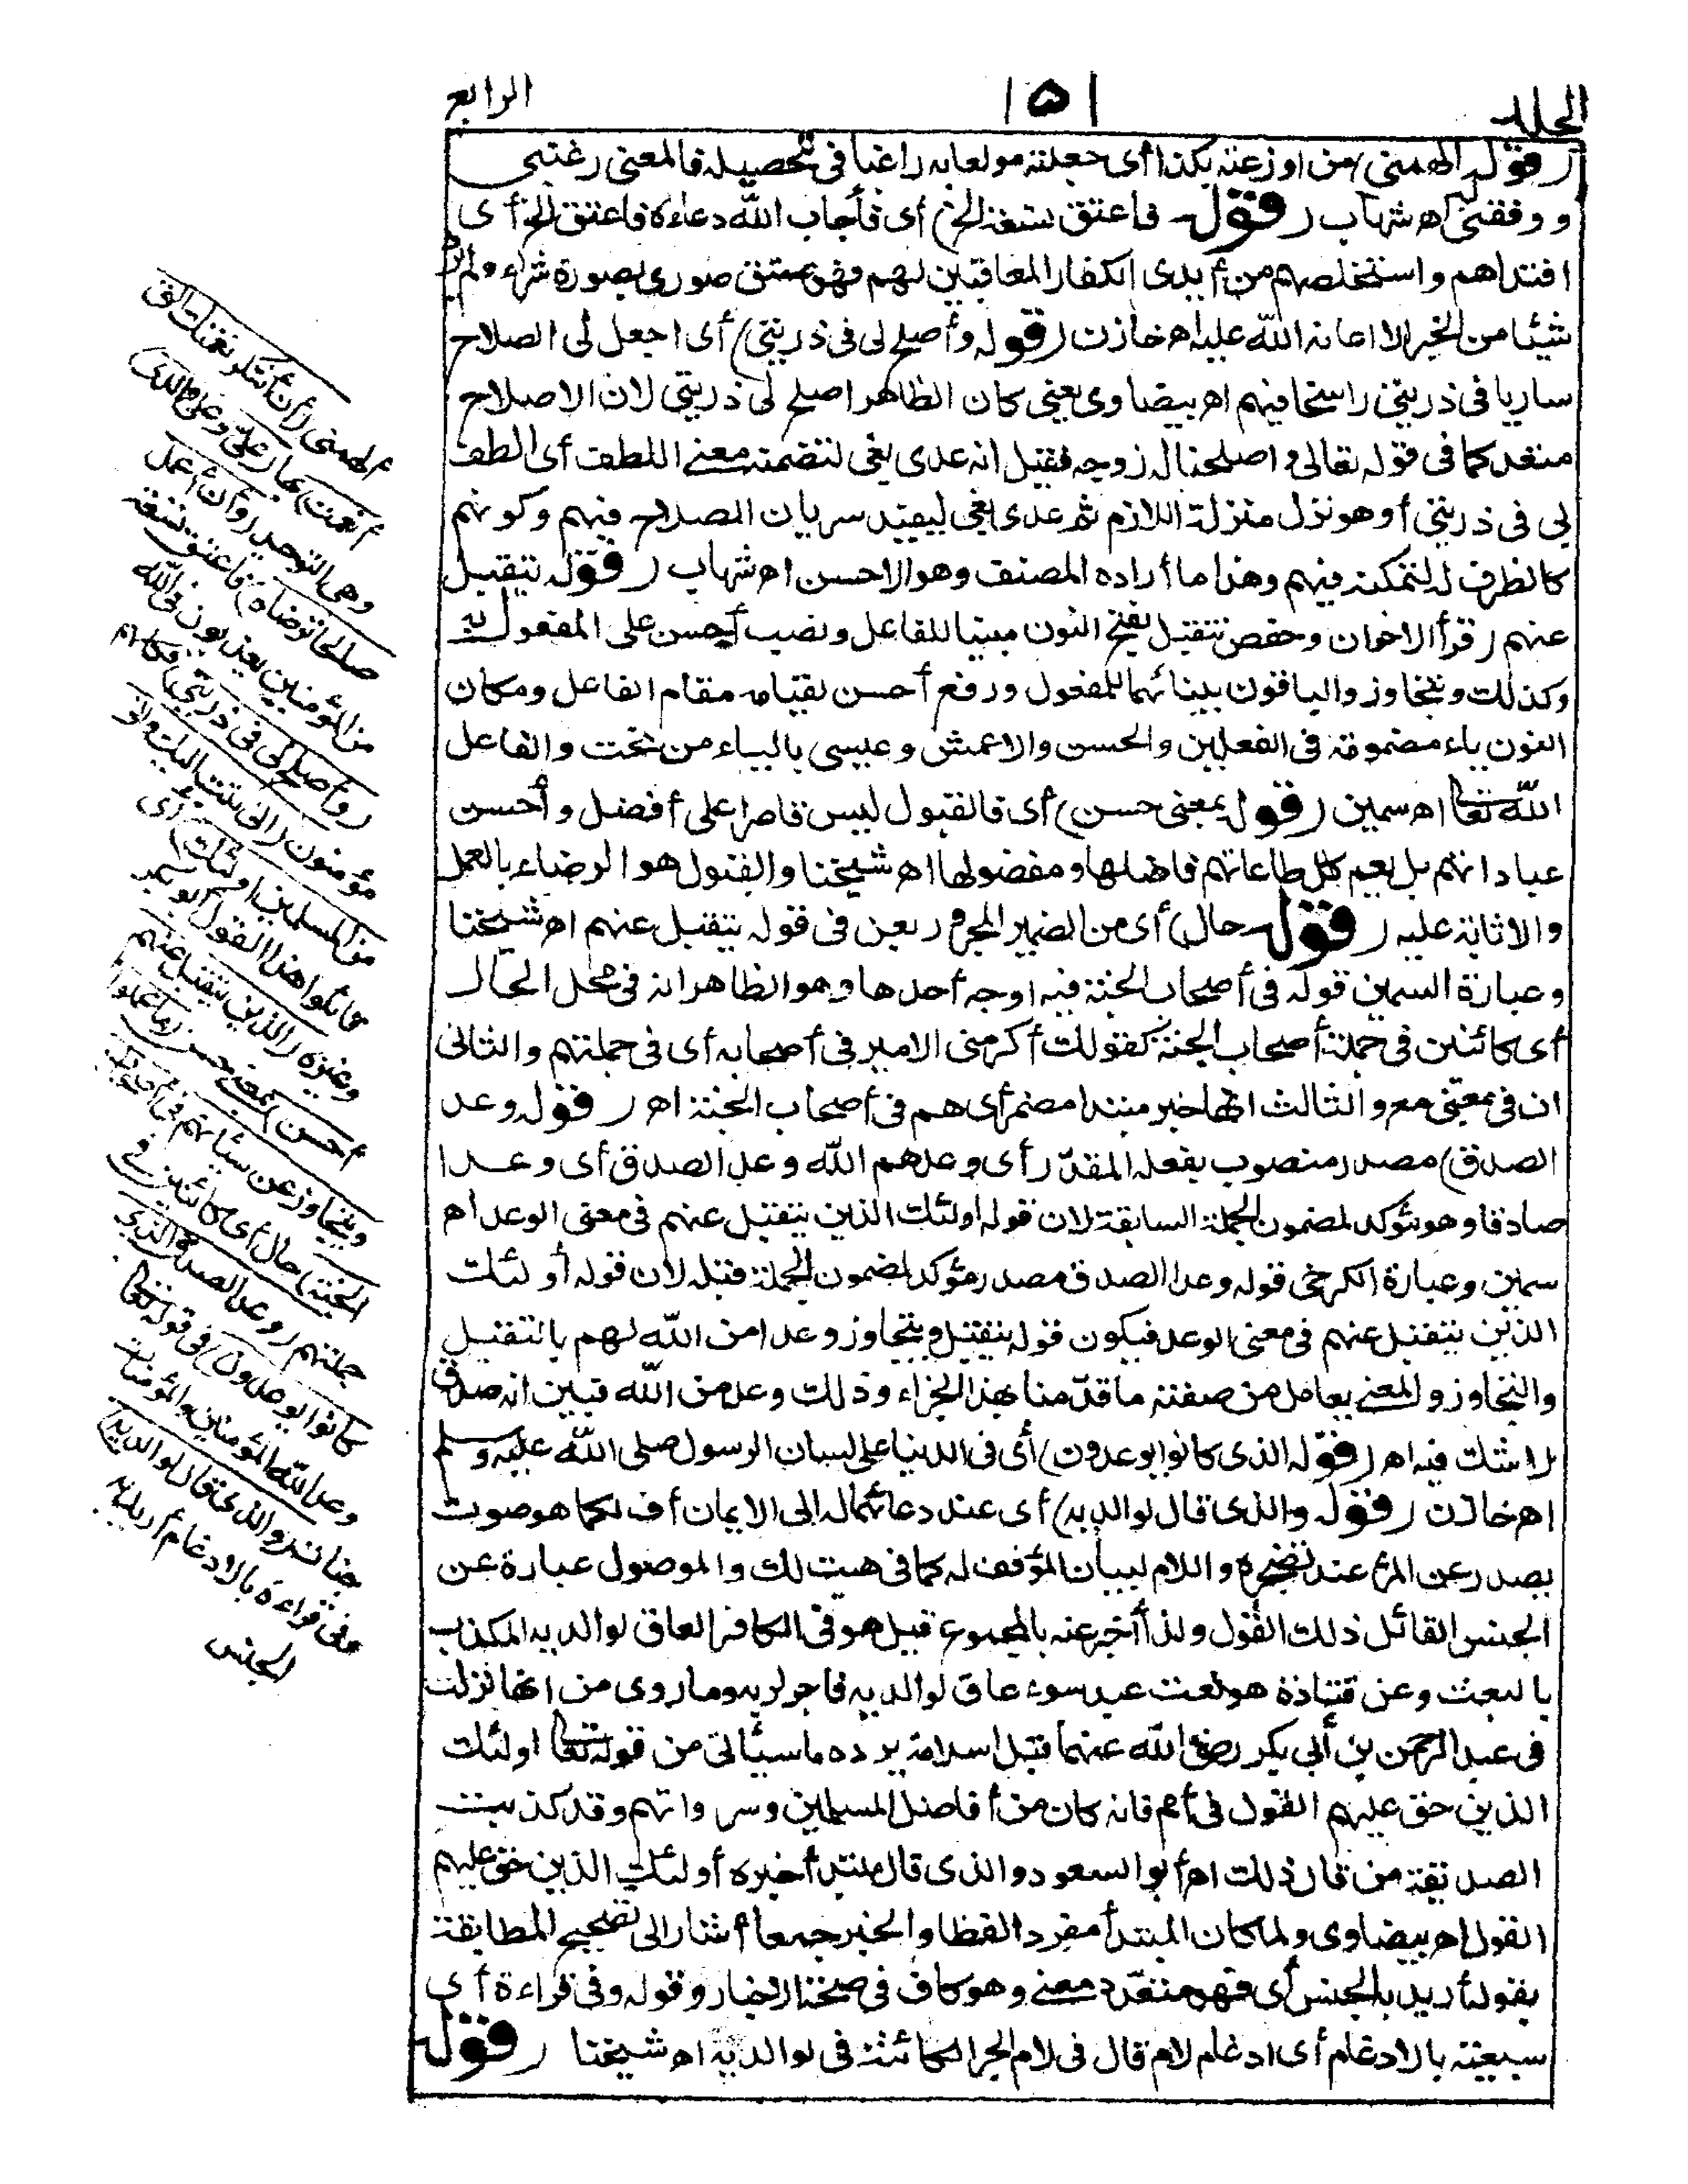 الجلد
١٥١
الرابع
(قوله ألهمنى) من أوزعته بكذا أى جعلته مولعا به راغبا فى تحصيله فالمعنى رغبنى
ووفقنى اه شهاب (قوله فاعتق تسعة الخ) أى فأجاب الله دعاءه فاعتق الخ أى
افتداهم واستخلصهم من أيدى الكفار المعاقبين لهم فهو عتق صورى بصورة شراء ولم يرد
شيئا من الخير الا اعانه الله عليه اه خازن (قوله وأصلح لى فى ذريتى) أى اجعل لى الصلاح
ساريا فى ذريتى راسخا فيهم اه بيضاوى يعنى كان الظاهر اصلح لى ذريتى لان الاصلاح
متعد كما فى قوله تعالى واصلحنا له زوجه فقيل انه عدى بفى لتضمنه معنى اللطف أى الطف
لى فى ذريتى أو هو نزل منزلة اللازم ثم عدى بفى ليفيد سريان الصلاح فيهم وكونهم
كالظرف له لتمكنه فيهم وهذا ما أراده المصنف وهو الاحسن اه شهاب (قوله نتقبل
عنهم) قرأ الاخوان وحفص نتقبل بفتح النون مبنيا للفاعل ونصب أحسن على المفعول به
وكذلك ونتجاوز والباقون ببنائهما للمفعول ورفع أحسن لقيامه مقام الفاعل ومكان
النون ياء مضمومة فى الفعلين والحسن والاعمش وعيسى بالياء من تحت والفاعل
الله تعالى اه سمين (قوله بمعنى حسن) أى فالقبول ليس قاصرا على أفضل وأحسن
عباداتهم بل يعم كل طاعاتهم فاضلها ومفضولها اه شيخنا والقبول هو الرضاء بالعمل
والاثابة عليه (قوله حال) أى من الضمير المجرور بعن فى قوله يتقبل عنهم اه شيخنا
وعبارة السمين قوله فى أصحاب الجنة فيه اوجه أحدها وهو الظاهر انه فى محل الحال
أى كائنين فى جملة أصحاب الجنة كقولك أكرمنى الامير فى أصحابه أى فى جملتهم والثانى
ان فى بمعنى مع والثالث انها خبر مبتدا مضمر أى هم فى أصحاب الجنة اه (قوله وعد
الصدق) مصدر منصوب بفعله المقدر أى وعدهم الله وعد الصدق أى وعدا
صادقا وهو مؤكد لمضمون الجملة السابقة لان قوله اولئك الذين يتقبل عنهم فى معنى الوعد اه
سمين وعبارة الكرخى قوله وعد الصدق مصدر مؤكد لمضمون الجملة قبله لان قوله أولئك
الذين يتقبل عنهم فى معنى الوعد فيكون قوله يتقبل ويتجاوز وعدا من الله لهم بالتقبل
والتجاوز والمعنى يعامل من صفته ما قدمنا بهذا الجزاء وذلك وعد من الله فبين انه صدق
لا شك فيه اه (قوله الذى كانوا يوعدون) أى فى الدنيا على لسان الرسول صلى الله عليه وسلم
اه خازن (قوله والذى قال لوالديه) أى عند دعائهما له الى الايمان أف لكما هو صوت
يصدر عن المرء عند تضجره واللام لبيان المؤفف له كما فى هيت لك والموصول عبارة عن
الجنس القائل ذلك القول ولذا أخبر عنه بالمجموع قيل هو فى الكافر العاق لوالديه المكذب
بالبعث وعن قتادة هو نعت عبد سوء عاق لوالديه فاجر لربه وما روى من انها نزلت
فى عبد الرحمن بن أبى بكر رضى الله عنهما قبل اسلامه يرده ما سيأتى من قوله تعالى اولئك
الذين حق عليهم القول فى أمم فانه كان من أفاضل المسلمين وسرواتهم وقد كذبت
الصديقة من قال ذلك اه أبو السعود والذى قال مبتدأ خبره أولئك الذين حق عليهم
القول اه بيضاوى ولما كان المبتدأ مفردا لفظا والخبر جمعا أشار الى تصحيح المطابقة
بقوله أريد به الجنس أى فهو متعدد معنى وهو كاف فى صحة الاخبار وقوله وفى قراءة أى
سبعية بالادغام أى ادغام لام قال فى لام الجر الكائنة فى لوالديه اه شيخنا (قوله
ألهمنى (أن أشكر نعمتك التى
أنعمت) بها (على وعلى والدى)
وهى التوحيد (وأن أعمل
صالحا ترضاه) فاعتق تسعة
من المؤمنين يعذبون فى الله
(وأصلح لى فى ذريتى) فكلهم
مؤمنون (انى تبت اليك وانى
من المسلمين اولئك) أى
قائلوا هذا القول أبو بكر
وغيره (الذين يتقبل عنهم
أحسن) بمعنى حسن (ما عملوا
ويتجاوز عن سيئاتهم فى أصحاب
الجنة) حال أى كائنين فى
جملتهم (وعد الصدق الذى
كانوا يوعدون) فى قوله تعالى
وعد الله المؤمنين والمؤمنات
جنات (والذى قال لوالديه)
وفى قراءة بالادغام أريد به
الجنس